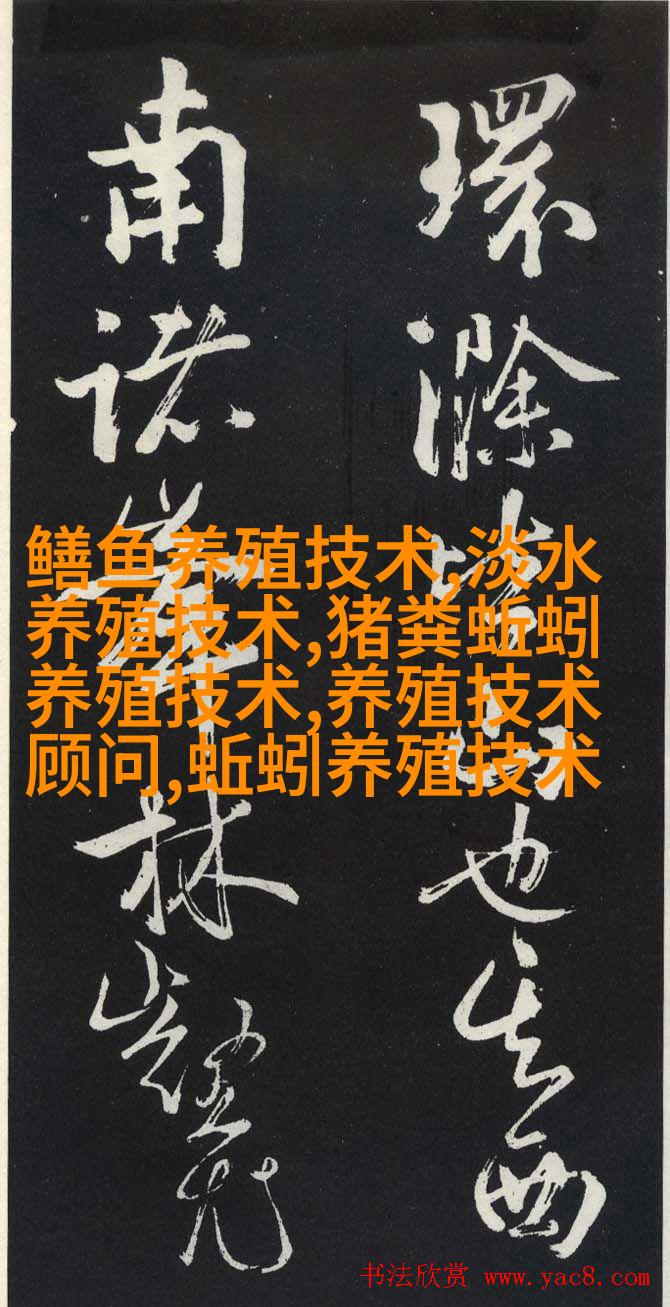 環滁皆山也其西
南諸峯林壑尤
鳝鱼养殖技术,淡水
养殖技术,猪粪蚯蚓
养殖技术,养殖技术
顾问,蚯蚓养殖技术
书法欣赏 www.yac8.com